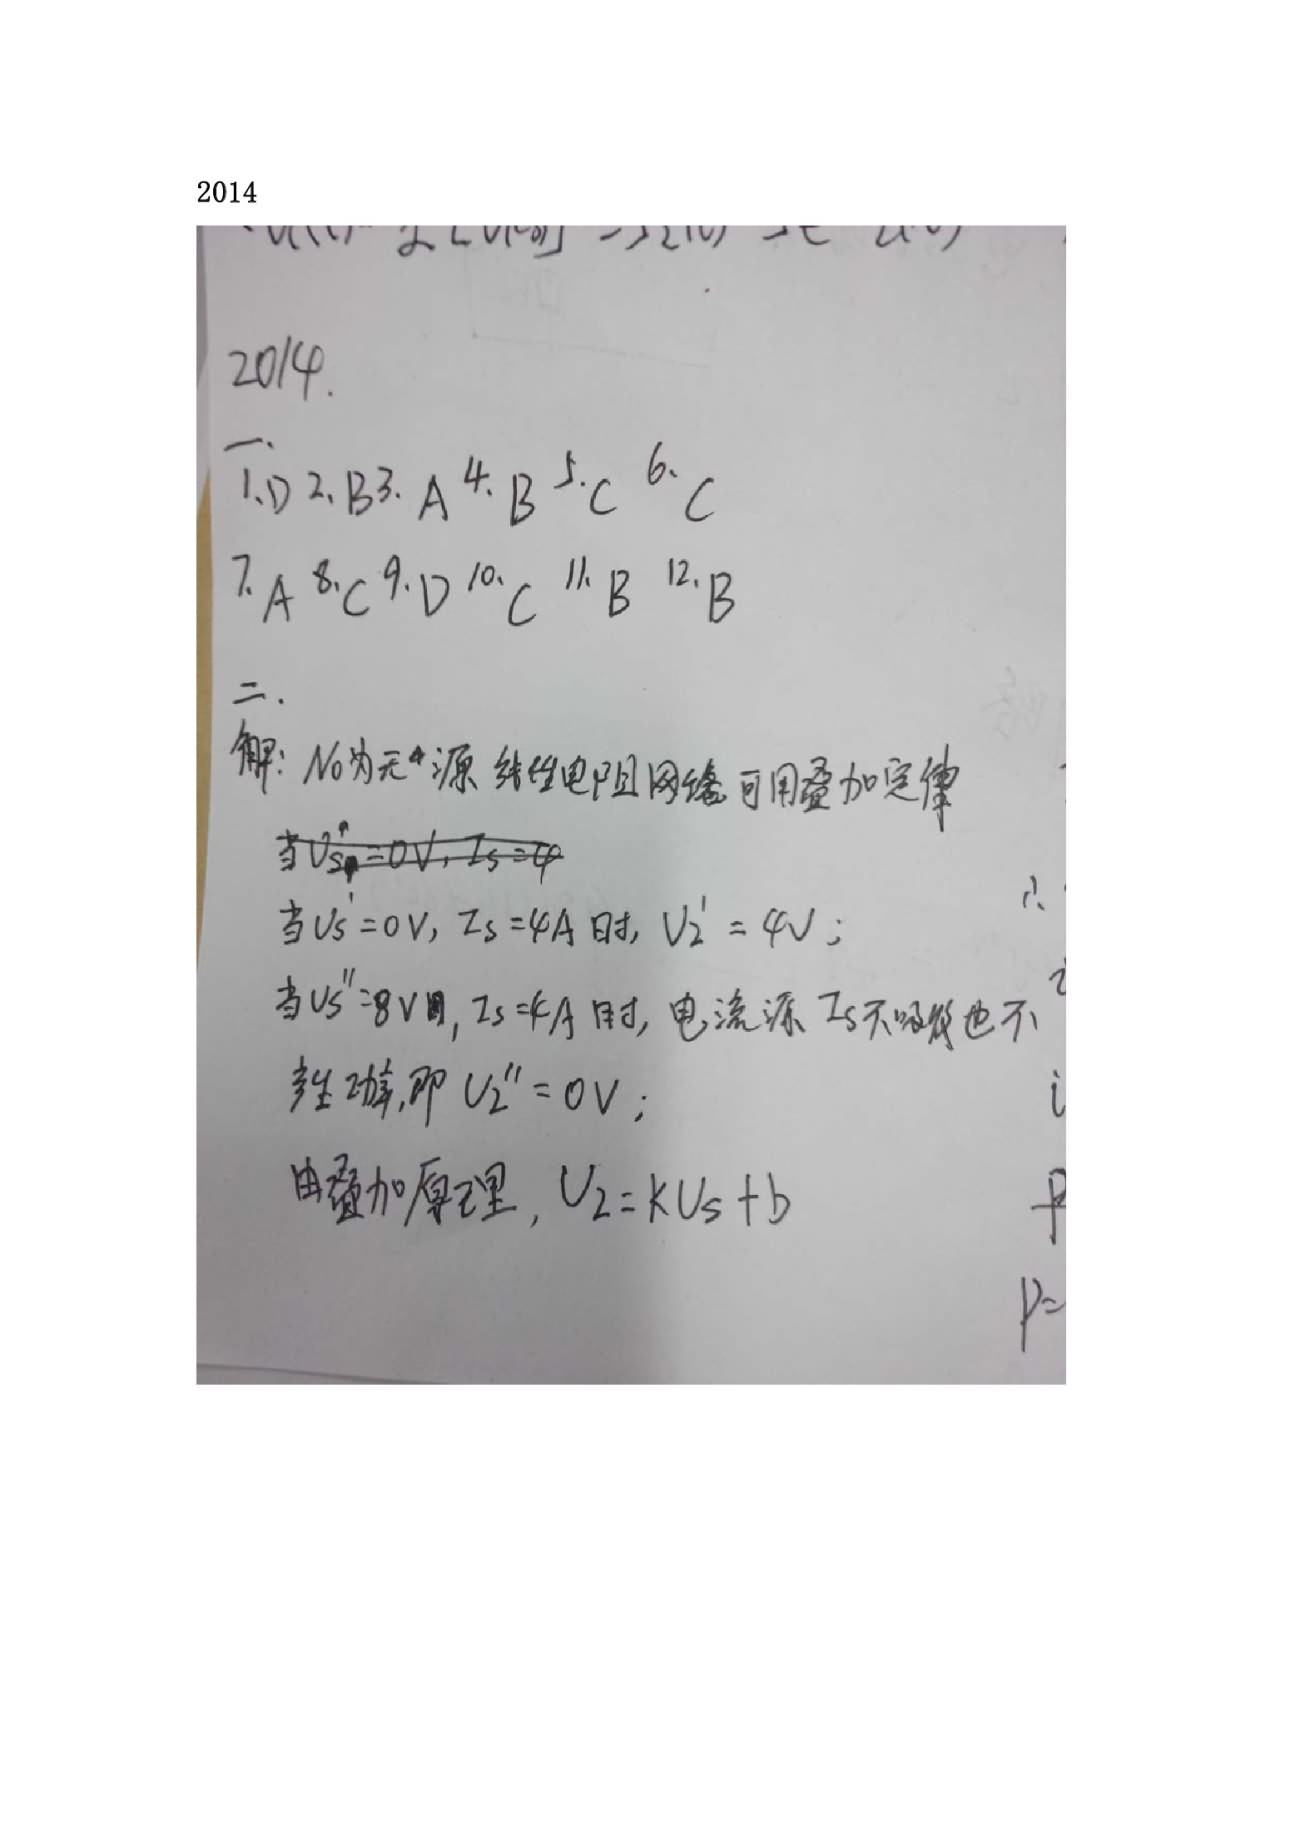 2014
2014.
一.
1. D 2. B 3. A 4. B 5. C 6. C
7. A 8. C 9. D 10. C 11. B 12. B
二.
解: N₀为无源线性电阻网络可用叠加定律
当Us'=0V, Is=4A时, U₂'=4V;
当Us''=8V, Is=4A时, 电流源Is不吸收也不
产生功率,即U₂''=0V;
由叠加原理, U₂=KUs+b